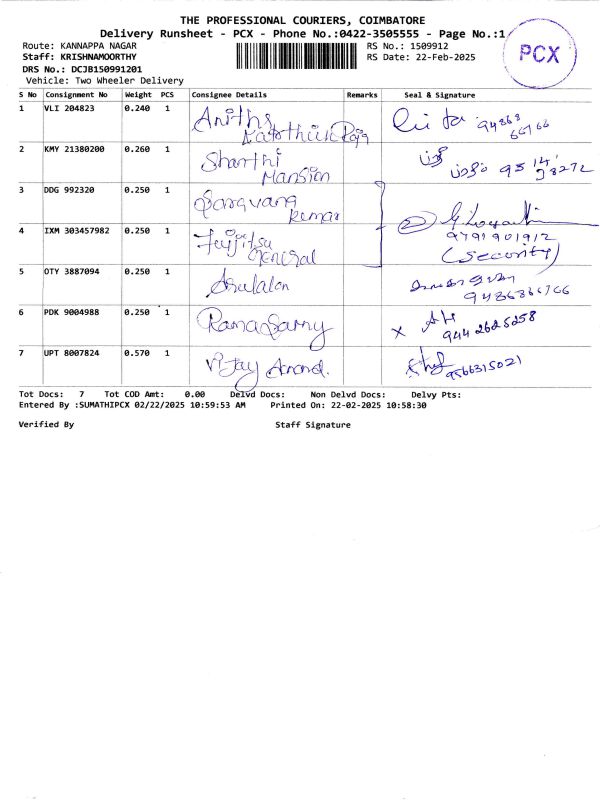 THE PROFESSIONAL COURIERS, COIMBATORE
Delivery Runsheet - PCX - Phone No.:0422-3505555 - Page No.:1
Route: KANNAPPA NAGAR RS No.: 1509912
Staff: KRISHNAMOORTHY RS Date: 22-Feb-2025
DRS No.: DCJB150991201
Vehicle: Two Wheeler Delivery
PCX
S No Consignment No Weight PCS Consignee Details Remarks Seal & Signature
1 VLI 204823 0.240 1 Anitha
2 KMY 21380200 0.260 1 Shanthi Mansion
3 DDG 992320 0.250 1 Saravana Kumar
4 IXM 303457982 0.250 1 Fujitsu General 2 9791901912 (Security)
5 OTY 3887094 0.250 1
6 PDK 9004988 0.250 1 RamaSamy x 9442625258
7 UPT 8007824 0.570 1 Vijay Anand. 9566315021
Tot Docs: 7 Tot COD Amt: 0.00 Delvd Docs: Non Delvd Docs: Delvy Pts:
Entered By :SUMATHIPCX 02/22/2025 10:59:53 AM Printed On: 22-02-2025 10:58:30
Verified By Staff Signature